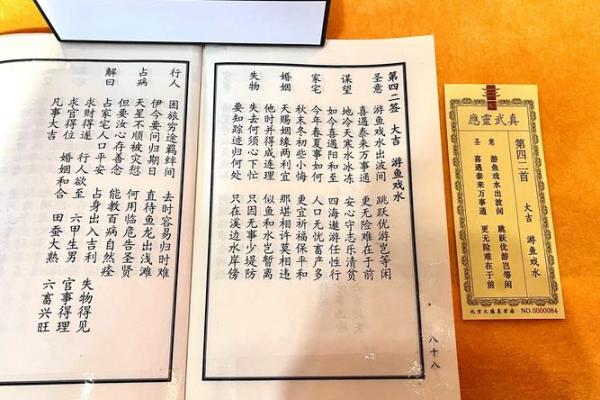 第四二签　大吉　游鱼戏水
圣意　游鱼戏水出波间　跳跃优游岂等闲
喜遇泰来万事通　更无险难在于前
谋望　地冷天寒水冰冻　安心守志乐清贫
如今喜遇阳和至　四海遨游任性行
家宅　今年春夏事如何　人口无忧畜产多
秋末冬初些小悔　更宜祈福保平和
婚姻　天赐姻缘两利宜　那堪相许莫相违
他时并得成连理　似鱼和水岂暂离
失物　失去何须心下忙　只因无事少堤防
要知踪迹归何处　只在溪边水岸傍
八十八
行人　困旅穷途羁绊间　去时容易归时难
伊今要问归期日　直待鱼龙出浅滩
占病　天星不顺被灾愆　何用临危告圣贤
但要汝心存善念　能教百病自然痊
解曰　占家宅人口平安　占身出入吉利　失物得见
求财得遂　行人欲至　六甲生男　官事得理
求官得位　婚姻和合　田蚕大熟　六畜兴旺
凡事大吉
真武靈應
第四二首　大吉　游鱼戏水
圣意　游鱼戏水出波间　跳跃优游岂等闲
喜遇泰来万事通　更无险难在于前
NO.0000084